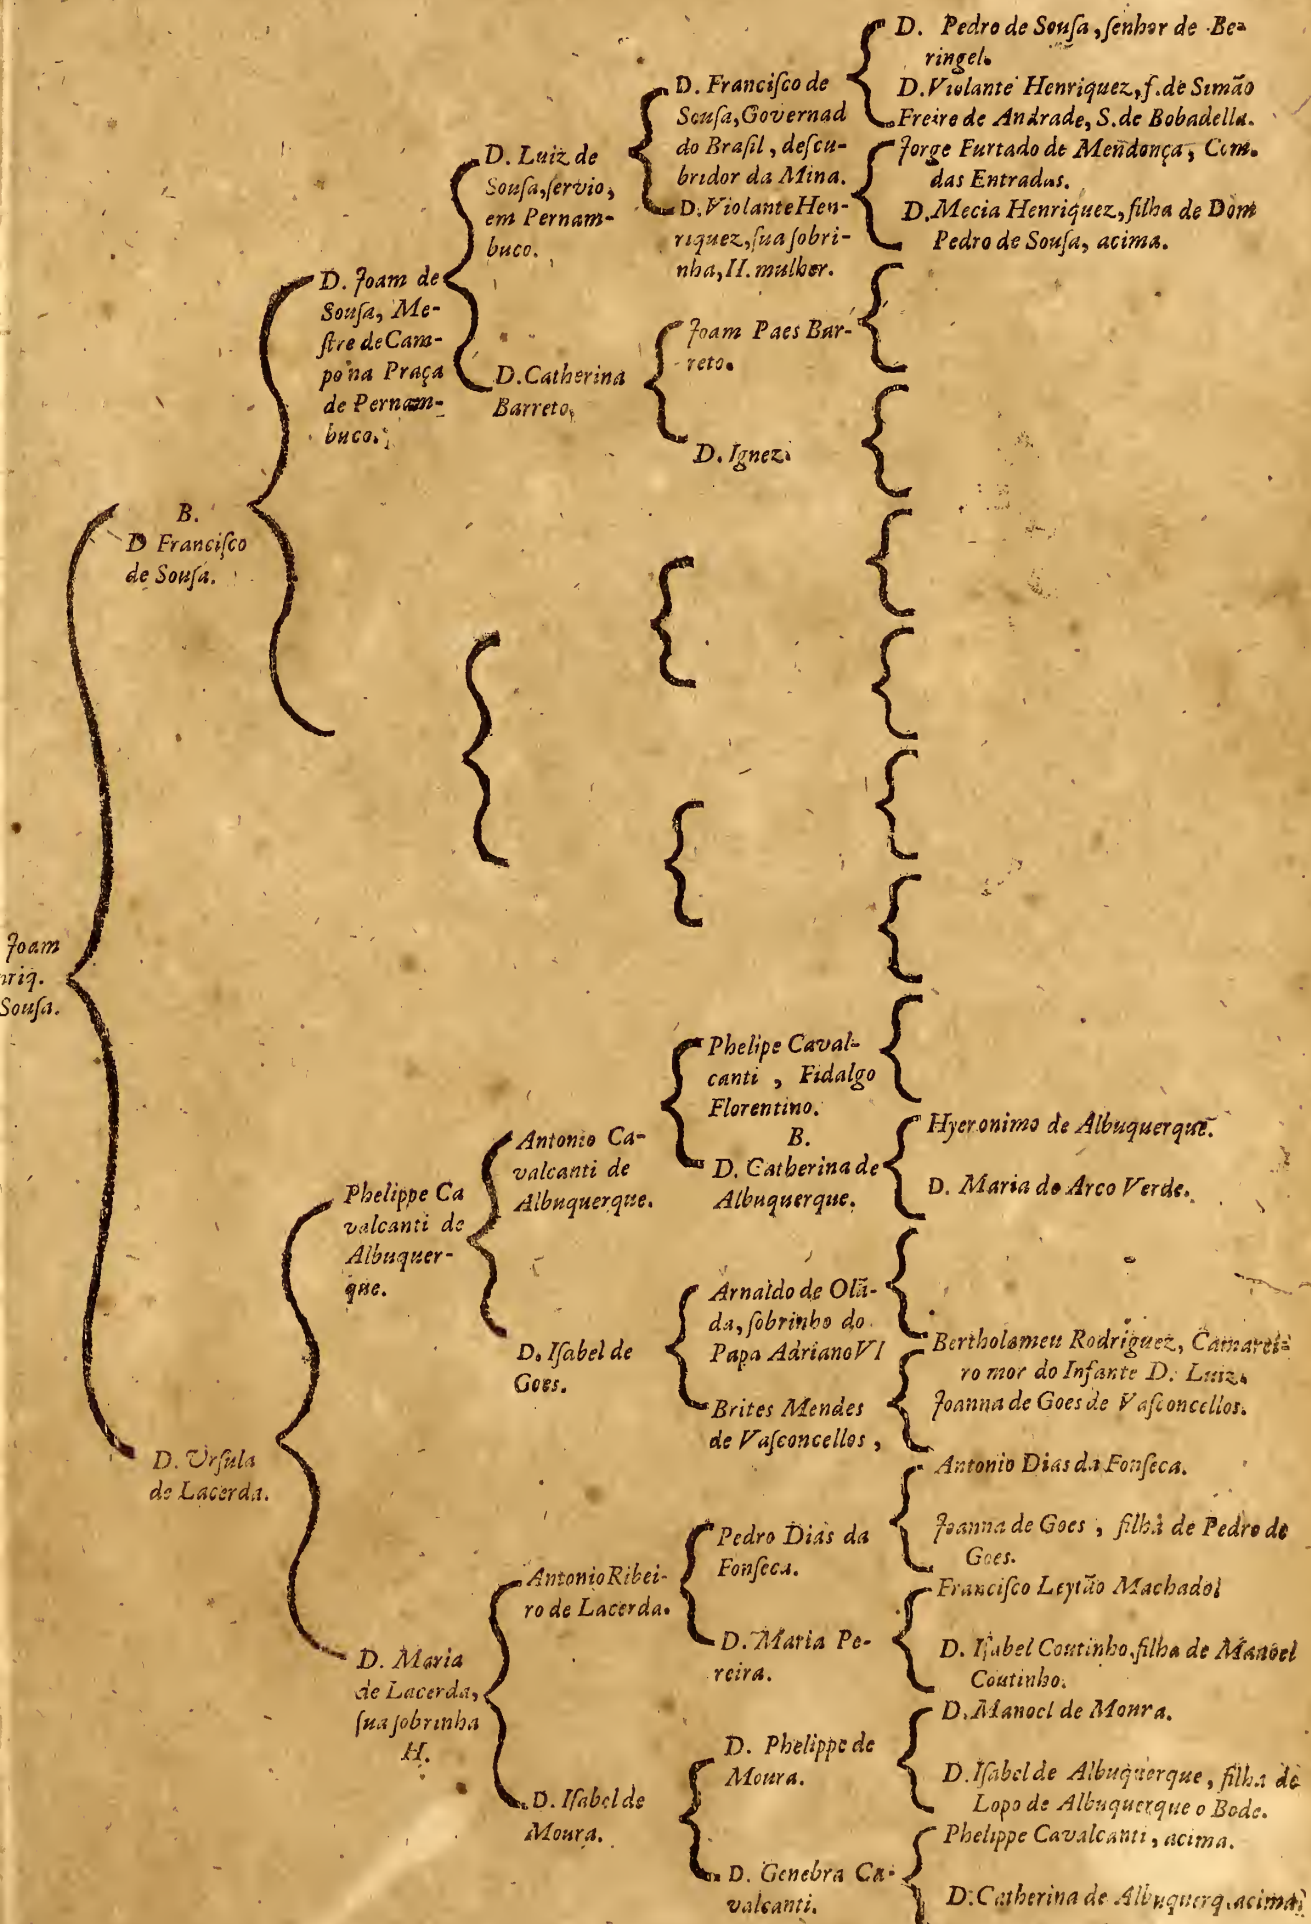 Joam
Sousa.
B.
D Franciſco
de Souſa.
D. Urſula
de Lacerda.
D. Joam de
Souſa, Me-
ſtre de Cam-
po na Praça
de Pernam-
buco.
Phelippe Ca
valcanti de
Albuquer-
que.
D. Maria
de Lacerda,
ſua ſobrinha
H.
D. Luiz de
Souſa, ſervio,
em Pernam-
buco.
D. Catherina
Barreto,
Antonio Ca-
valcanti de
Albuquerque.
D. Iſabel de
Goes.
Antonio Ribei-
ro de Lacerda.
D. Iſabel de
Moura.
D. Franciſco de
Souſa, Governad
do Braſil, deſcu-
bridor da Mina.
D. Violante Hen-
riquez, ſua ſobri-
nha, II. mulher.
Joam Paes Bar-
reto.
D. Ignez.
Phelipe Caval-
canti, Fidalgo
Florentino.
B.
D. Catherina de
Albuquerque.
Arnaldo de Olã-
da, ſobrinho do
Papa Adriano VI
Brites Mendes
de Vaſconcellos,
Pedro Dias da
Fonſeca.
D. Maria Pe-
reira.
D. Phelippe de
Moura.
D. Genebra Ca-
valcanti.
D. Pedro de Souſa, ſenhor de Be-
ringel.
D. Violante Henriquez, f. de Simão
Freire de Andrade, S. de Bobadella.
Jorge Furtado de Mendonça, Com.
das Entradas.
D. Mecia Henriquez, filha de Dom
Pedro de Souſa, acima.
Hyeronimo de Albuquerque.
D. Maria do Arco Verde.
Bertholameu Rodriguez, Camarei-
ro mor do Infante D. Luiz.
Joanna de Goes de Vaſconcellos.
Antonio Dias da Fonſeca.
Joanna de Goes, filha de Pedro de
Goes.
Franciſco Leytão Machado
D. Iſabel Coutinho, filha de Manoel
Coutinho.
D. Manoel de Moura.
D. Iſabel de Albuquerque, filha de
Lopo de Albuquerque o Bode.
Phelippe Cavalcanti, acima.
D. Catherina de Albuquerq. acima